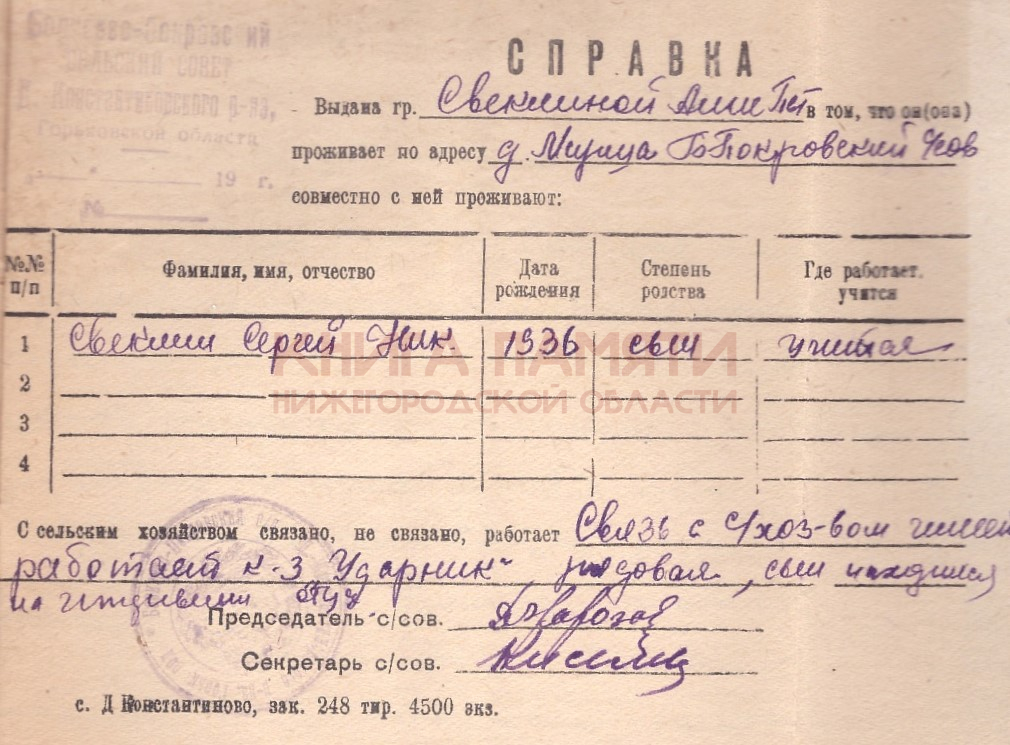 СЕЛЬСКИЙ СОВЕТ
Д. Константиновского р-на,
Горьковской области
19 г.
№
СПРАВКА
Выдана гр. Свеклиной Анне Пет в том, что он(она)
проживает по адресу д. Б-Покровский с/сов
совместно с ней проживают:
№№ п/п Фамилия, имя, отчество Дата рождения Степень родства Где работает, учится
1 Свеклин Сергей Ник 1936 сын
2
3
4
КНИГА ПАМЯТИ
НИЖЕГОРОДСКОЙ ОБЛАСТИ
С сельским хозяйством связано, не связано, работает Связь с с/хоз-вом имеет
работает к-з Ударник" рядовая, сын находился
на иждивении
Председатель с/сов.
Секретарь с/сов.
с. Д Константиново, зак. 248 тир. 4500 экз.